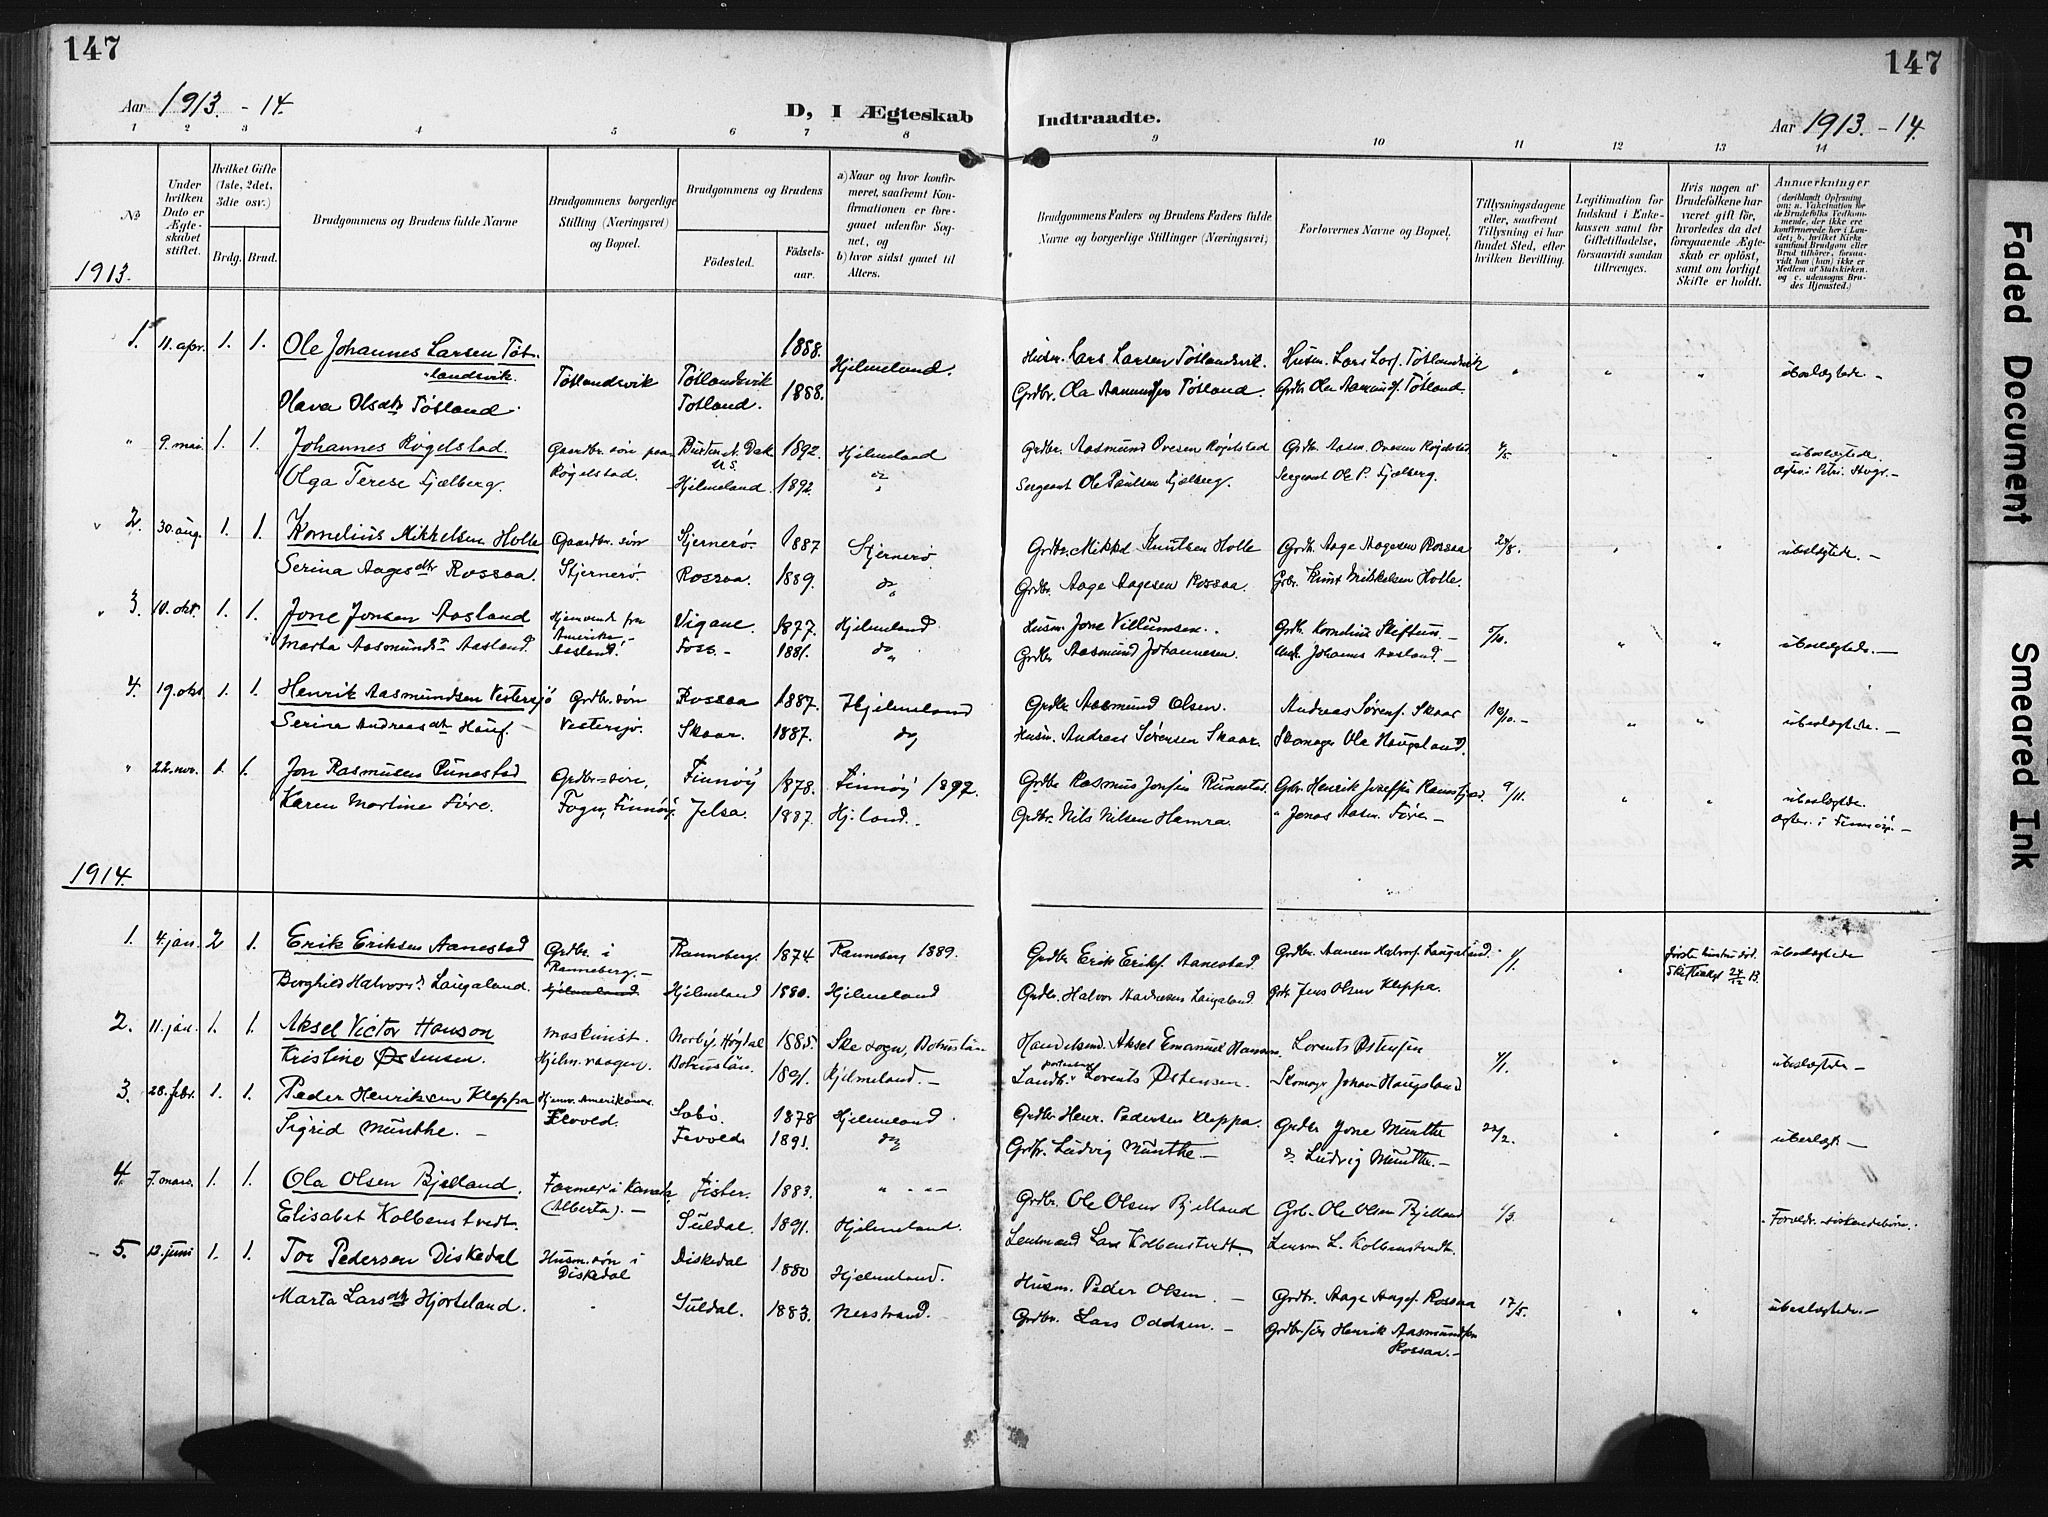 147
147
Aar 1913. - 14.
D, I Ægteskab
Indtraadte.
Aar 1913. - 14.
1 2 3 4 5 6 7 8 9 10 11 12 13 14
No
Under hvilken Dato er Ægteskabet stiftet.
Hvilket Gifte (1ste, 2det, 3die osv.)
Brdg. Brud.
Brudgommens og Brudens fulde Navne
Brudgommens borgerlige Stilling (Næringsvei) og Bopæl.
Brudgommens og Brudens
Födested.
Födselsaar.
a) Naar og hvor konfirmeret, saafremt Konfirmationen er foregaaet udenfor Sognet, og
b) hvor sidst gaaet til Alters.
Brudgommens Faders og Brudens Faders fulde Navne og borgerlige Stillinger (Næringsvei)
Forlovernes Navne og Bopæl.
Tillysningsdagene eller, saafremt Tillysning ei har fundet Sted, efter hvilken Bevilling.
Legitimation for Indskud i Enkekassen samt for Giftetilladelse, forsaavidt saadan tiltrænges.
Hvis nogen af Brudefolkene har været gift för, hvorledes da det foregaaende Ægteskab er oplöst, samt om lovligt Skifte er holdt.
Anmærkninger (deriblandt Oplysning om: a. Vakcination for de Brudefolks Vedkommende, der ikke ere konfirmerede her i Landet; b. hvilket Kirkesamfund Brudgom eller Brud tilhörer, forsaavidt han (hun) ikke er Medlem af Statskirken. og c. udensogns Brudes Hjemsted.)
1913.
1. 11. apr. 1. 1. Ole Johannes Larsen Töt- 1888. Hjelmeland. Husm. Lars Larsen Tötlandsvik. Husm. Lars Lars. Tötlandsvik " " " ubeslægtede -
landsvik. Tötlandsvik Tötlandsvik
Olava Olsdtr Tötland. Totland. 1888. Grdbr. Ola Aasmundsen Tötland. Grdbr Ola Aasmunds. Tötland.
" 9. mai. 1. 1. Johannes Røgelstad. Gaardbr. søn paa 1892. Hjelmeland Grdbr. Aasmund Ovesen Røgelstad Grdbr. Aasm. Ovesen Røgelstad " " ubeslægtede.
Olga Terese Fjælberg. Røgelstad. Hjelmeland. 1892. Sergeant Ole Paulsen Fjælberg. Sergeant Ole P. Fjælberg.
2. 30. aug. 1. 1. Kornelius Mikkelsen Holle Gaardbr. søn Stjernerø. 1887 Stjernerø Grdbr. Mikkel Knutsen Holle Grdbr. Aage Aagesen Rossaa 24/8. " " ubeslægtede. -
Serina Aagesdtr Rossaa. Stjernerø. Rossaa. 1889. do Grdbr. Aage Aagesen Rossaa. Grbr. Knut Mikkelsen Holle.
" 3. 10. okt. 1. 1. Jone Jonsen Aasland Hjemvendt fra Vigane. 1877. Hjelmeland Husm. Jone Villumsen. Grdbr. Kornelius Skiftun. - 5/10. " " ubeslægtede. -
Amerika -
Marta Aasmunds Aasland. Aasland. Foss - 1881. do Grdbr Aasmund Johannesen. Johannes Aasland. -
4. 19. okt. 1. 1. Henrik Aasmundsen Vestersjö Grdbr. søn Rossaa 1887. Hjelmeland Grdbr Aasmund Olsen. Andreas Sørens. Skaar 12/10. - " " ubeslægtede. -
Serina Andreasdtr Hauf. - Vestersjø. Skaar. 1887. do Husm. Andreas Sørensen Skaar. Skomager Ole Haugsland.
" 22. nov. 1. 1. Jon Rasmusen Runestad Grdbr-søn, Finnøy 1878. Finnøy 1892. Grdbr Rasmus Jonsen Runestad. Grbr. Henrik 9/11. " " ubeslægtede.
Karen Martine Føre. Fogn, Finnøy. Jelsa. 1887. Hj.land. Grdbr. Nils Nilsen Hamra. " Jonas Aasm. Føre - ægtev. i Finnöy. -
1914.
1. 4. jan. 2 1. Erik Eriksen Aanestad Grdbr. i Ranneberg. 1874. Ranneberg 1889. Grdbr Erik Eriks. Aanestad. Grdbr. Aanen Halvors. Laugaland. 1/1. " ubeslægtede
Ranneberg. -
Borghild Halvors Laugaland. Hjelmeland Hjelmeland 1880. Hjelmeland Grdbr. Halvor Laugaland. Grdbr Jens Olsen Kleppa.
2. 11. jan. 1. 1. Aksel Victor Hanson Maskinist. 1885. Ske sogn, Handelsmd. Aksel Emanuel Hanson. Lorents Østensen 4/1. " " ubeslægtede -
Kristine Østensen. Hjelm.vaagen. 1891. Hjelmeland. - Landh. Lorents Østensen. Skomager Johan Haugsland
3. 28. febr. 1. 1. Peder Henriksen Kleppa Hjemv. Amerikaner. Søbø 1878 Hjelmeland Grdbr Henr. Pedersen Kleppa. Grdbr Jone Munthe 22/2. " " ubeslægt -
Sigrid Munthe. - Fevold. Fevold 1891. do Grbr. Ludvig Munthe. - do Ludvig Munthe. -
4. 7. mars. 1. 1. Ola Olsen Bjelland. Farmer i Kanada Fister. 1883. " - " - Grdbr. Ole Olsen Bjelland Grb. Ole Olsen Bjelland 1/3. " "
Elisabet Kolbenstvedt. (Alberta). - Suldal. 1891. Hjelmeland. Lensmand Lars Kolbenstvedt. Lensm. L. Kolbenstvedt.
- 5. 12. juni 1. 1. Tor Pedersen Diskedal Husm.søn i Diskedal 1880 Hjelmeland. Husm. Peder Olsen. - Grdbr. Aage Aages. Rossaa 17/5. " " ubeslægtede. -
Diskedal
Marta Larsdtr Hjorteland. " Suldal. 1883. Nerstrand. Grdbr. Lars Oddsen. - Grdbrsøn Henrik Aasmundsen
Rossaa. -
Faded Document
Smeared Ink